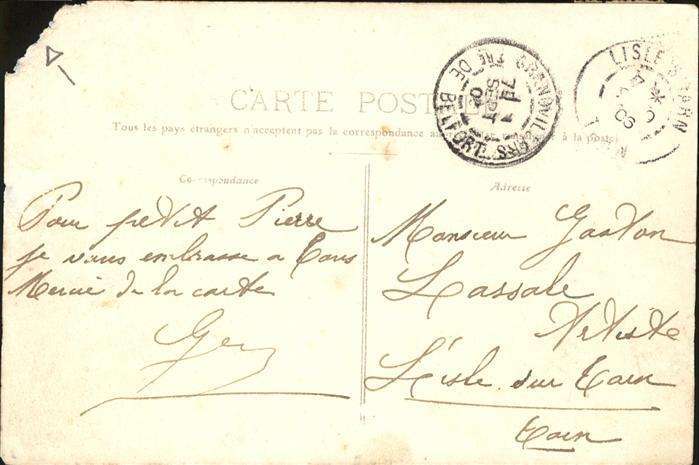 CARTE POSTALE
Tous les pays étrangers n'acceptent pas la correspondance au à la poste
Correspondance
Adresse
GRANDVILLARS
TRE DE BELFORT
7 SEPT
LISLE TARN
Pour petit Pierre
je vous embrasse a tous
Merci de la carte
Monsieur Gaston
Lassale
Artiste
L'isle sur Tarn
Tarn